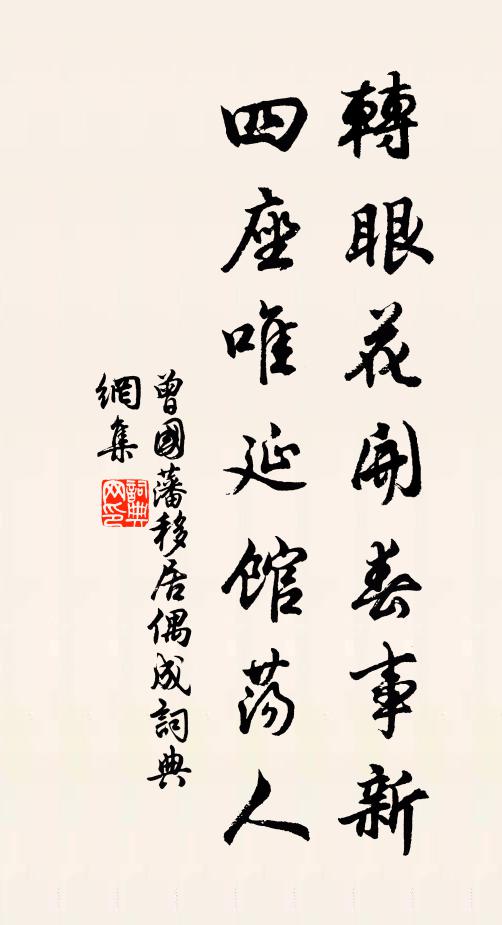 轉眼花開春事新
四座唯延館蕩人
曾國藩移居偶成詞典
網集
詞典
网印